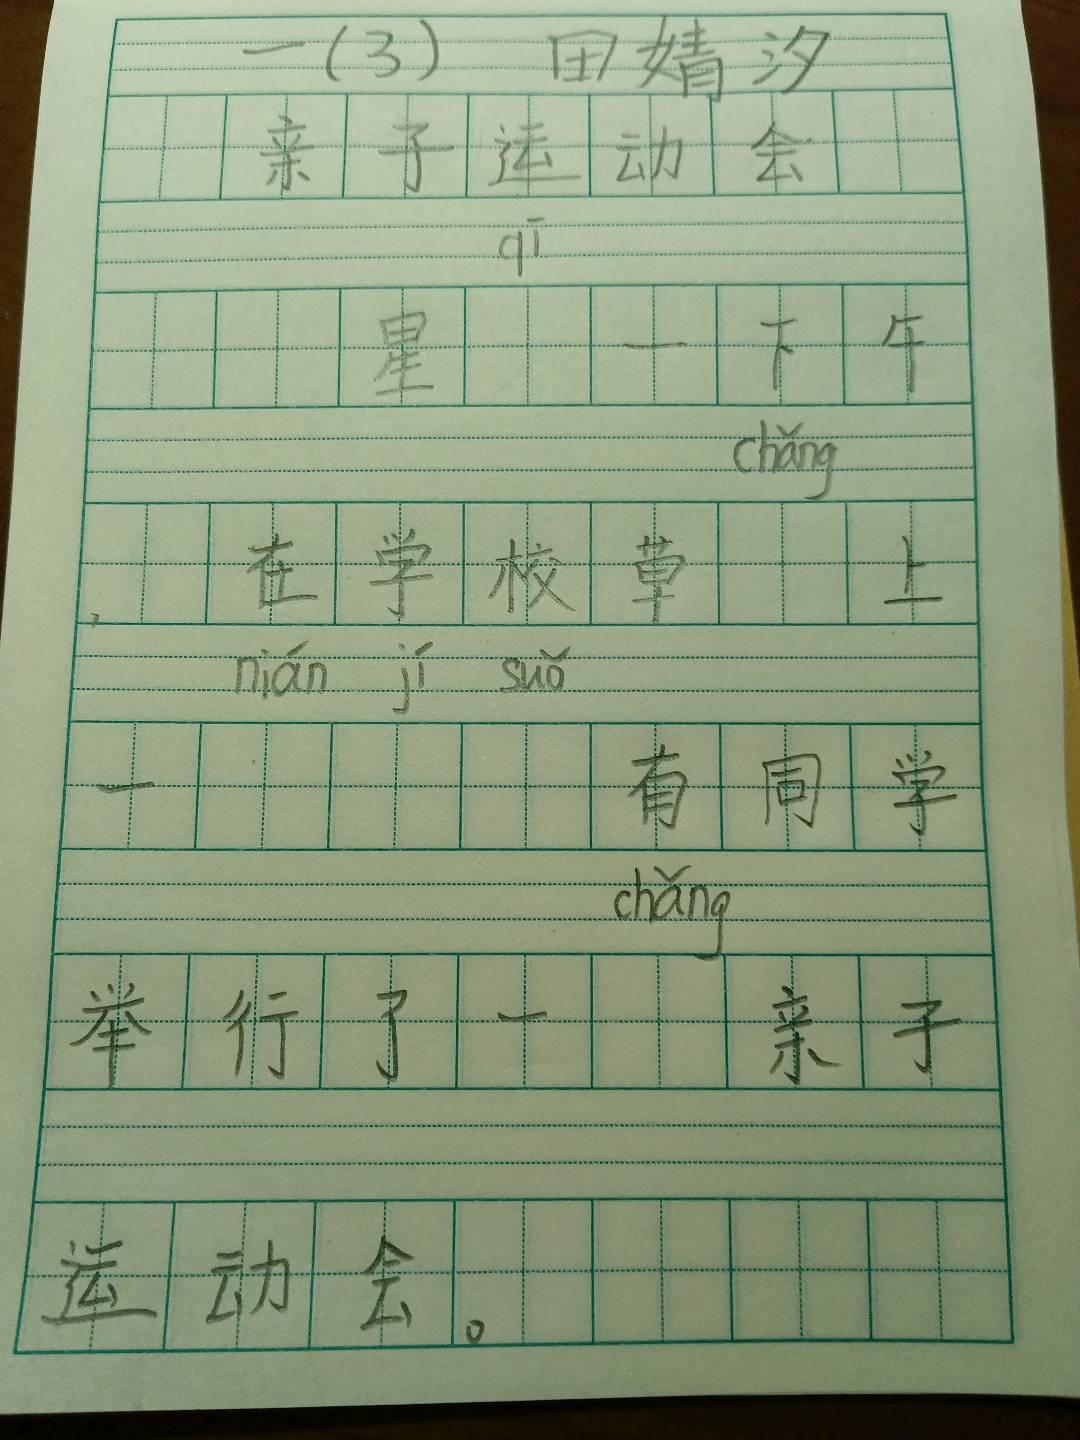 一(3) 田婧汐
亲子运动会
qī
星 一下午
chǎng
，在学校草 上
nián jí suǒ
一 有同学
chǎng
举行了一 亲子
运动会。